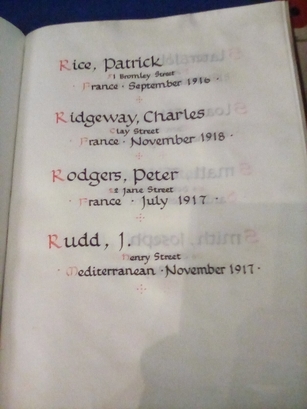 Rice, Patrick
71 Bromley Street
France · September 1916 ·
Ridgeway, Charles
Clay Street
· France · November 1918 ·
Rodgers, Peter
Jane Street
· France · July 1917 ·
Rudd, J.
Henry Street
· Mediterranean · November 1917 ·